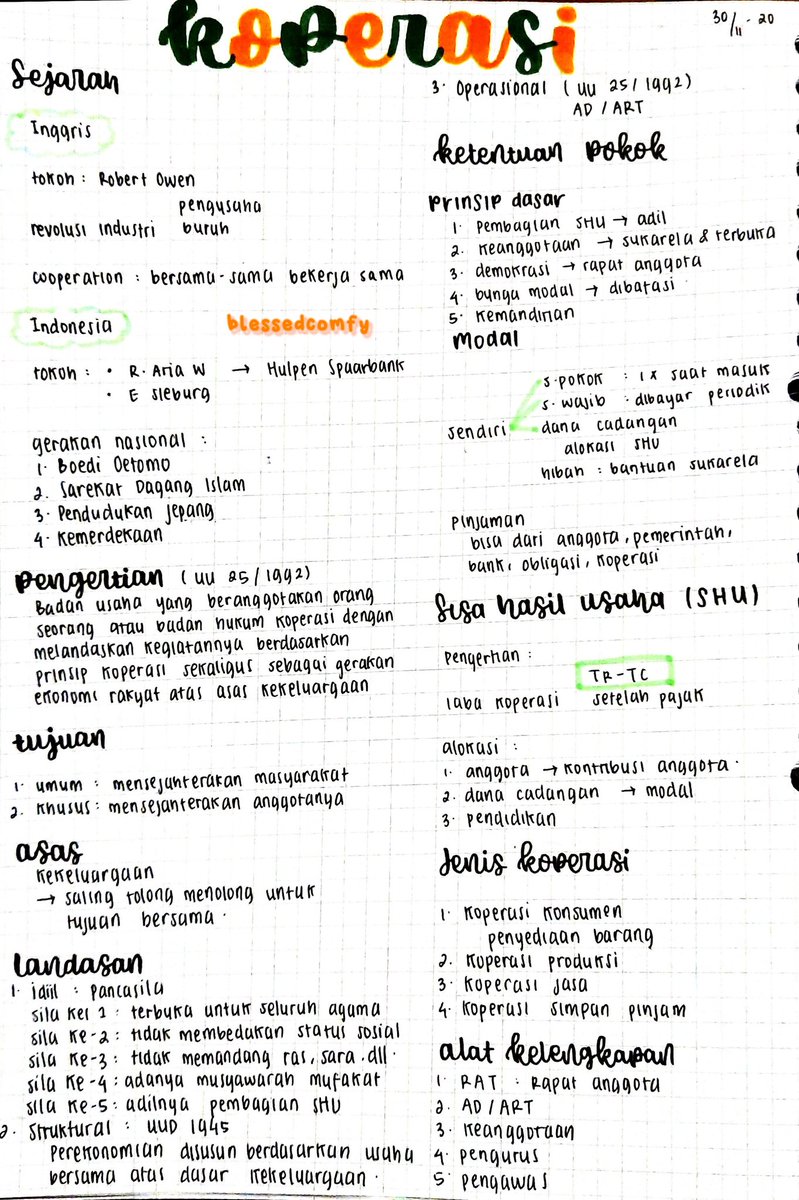 koperasi
30/11-20
Sejarah
Inggris
tokoh : Robert Owen
pengusaha
revolusi industri buruh
cooperation : bersama-sama bekerja sama
Indonesia
blessedcomfy
tokoh : • R. Aria W → Hulpen Spaarbank
• E Sieburg
gerakan nasional :
1. Boedi Oetomo
2. Sarekat Dagang Islam
3. Pendudukan Jepang
4. Kemerdekaan
Pengertian (UU 25/1992)
Badan usaha yang beranggotakan orang
seorang atau badan hukum koperasi dengan
melandaskan kegiatannya berdasarkan
prinsip koperasi sekaligus sebagai gerakan
ekonomi rakyat atas asas kekeluargaan
tujuan
1. umum : mensejahterakan masyarakat
2. khusus : mensejahterakan anggotanya
asas
kekeluargaan
→ saling tolong menolong untuk
tujuan bersama.
landasan
1. idiil : pancasila
sila kel 1 : terbuka untuk seluruh agama
sila ke-2 : tidak membedakan status sosial
sila ke-3 : tidak memandang ras, sara. dll.
sila ke-4 : adanya musyawarah mufakat
sila ke-5 : adilnya pembagian SHU
2. Struktural : UUD 1945
Perekonomian disusun berdasarkan usaha
bersama atas dasar kekeluargaan.
3. Operasional (UU 25/1992)
AD/ART
ketentuan pokok
prinsip dasar
1. Pembagian SHU → adil
2. Keanggotaan → sukarela & terbuka
3. demokrasi → rapat anggota
4. bunga modal → dibatasi
5. Kemandirian
Modal
sendiri
s.pokok : 1x saat masuk
s.wajib : dibayar periodik
dana cadangan
alokasi SHU
hibah : bantuan sukarela
Pinjaman
bisa dari anggota, pemerintah,
bank, obligasi, koperasi
Sisa hasil usaha (SHU)
pengertian :
TR-TC
laba koperasi setelah pajak
alokasi :
1. anggota → kontribusi anggota.
2. dana cadangan → modal
3. pendidikan
Jenis koperasi
1. Koperasi konsumen
penyediaan barang
2. Koperasi produksi
3. Koperasi jasa
4. Koperasi simpan pinjam
alat kelengkapan
1. RAT : Rapat anggota
2. AD/ART
3. Keanggotaan
4. pengurus
5. pengawas